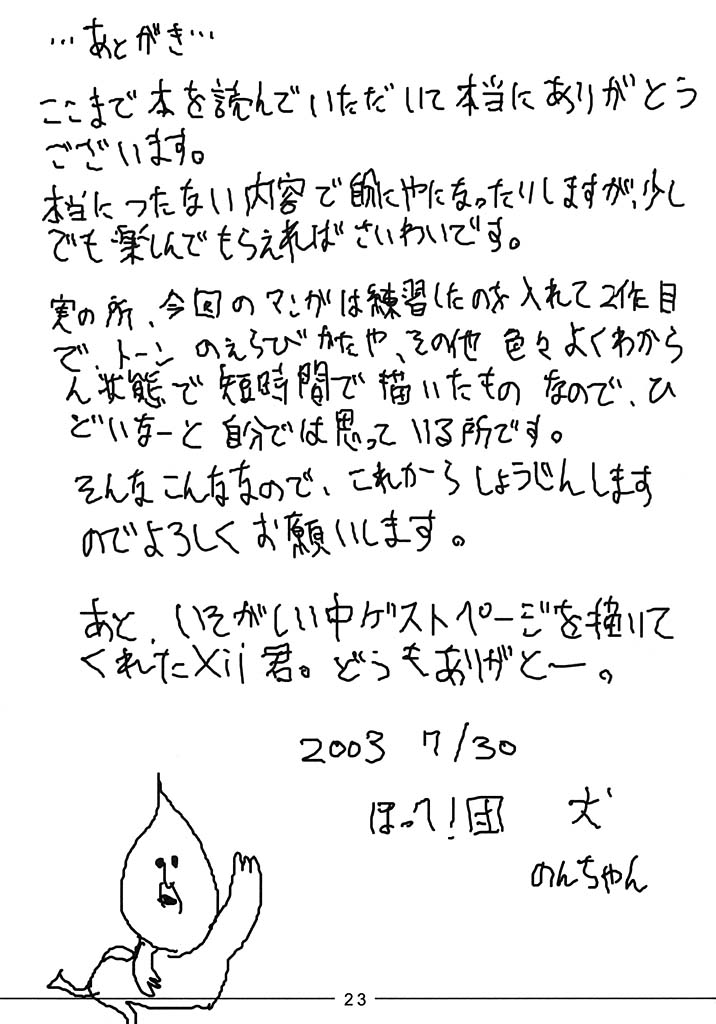 …あとがき…
ここまで本を読んでいただいて本当にありがとう
ございます。
本当につたない内容で しますが、少し
でも楽しんでもらえればさいわいです。
実の所、今回のマンガは練習したのを入れて2作目
で、トーンのえらびかたや、その他色々よくわから
ん状態で短時間で描いたものなので、ひ
どいなーと自分では思っている所です。
そんなこんななので、これからしょうじんします
のでよろしくお願いします。
あと、いそがしい中ゲストページを描いて
くれたXii君。どうもありがとー。
2003 7/30
ほって!団 犬
のんちゃん
23